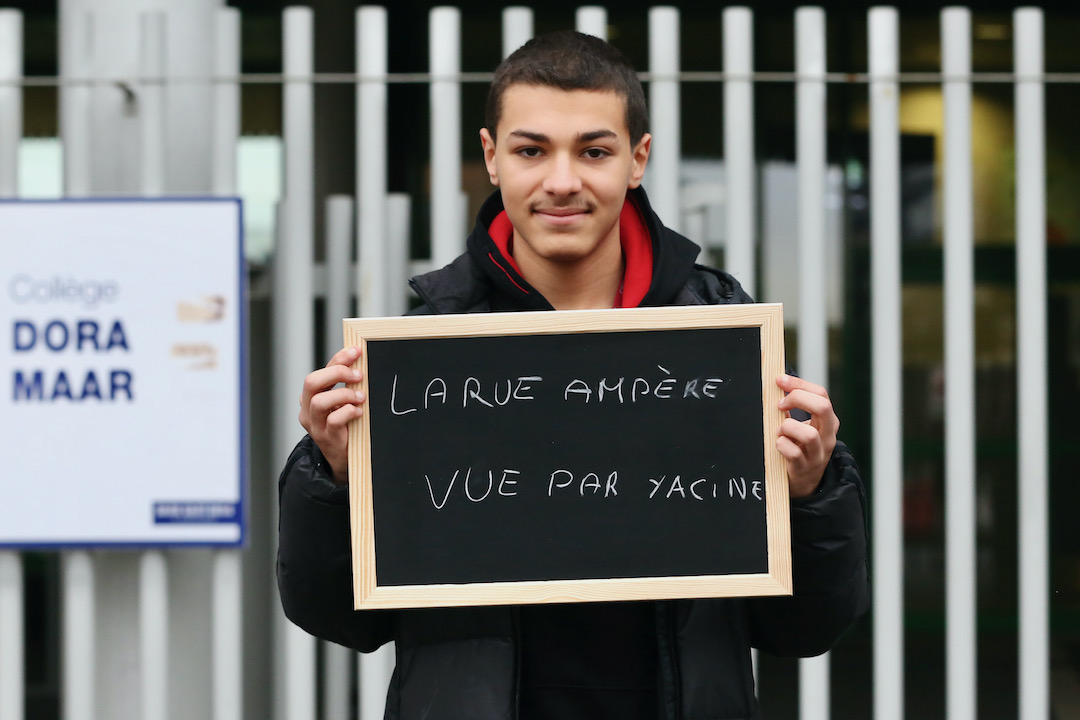 Collège
DORA
MAAR
LA RUE AMPÈRE
VUE PAR YACINE